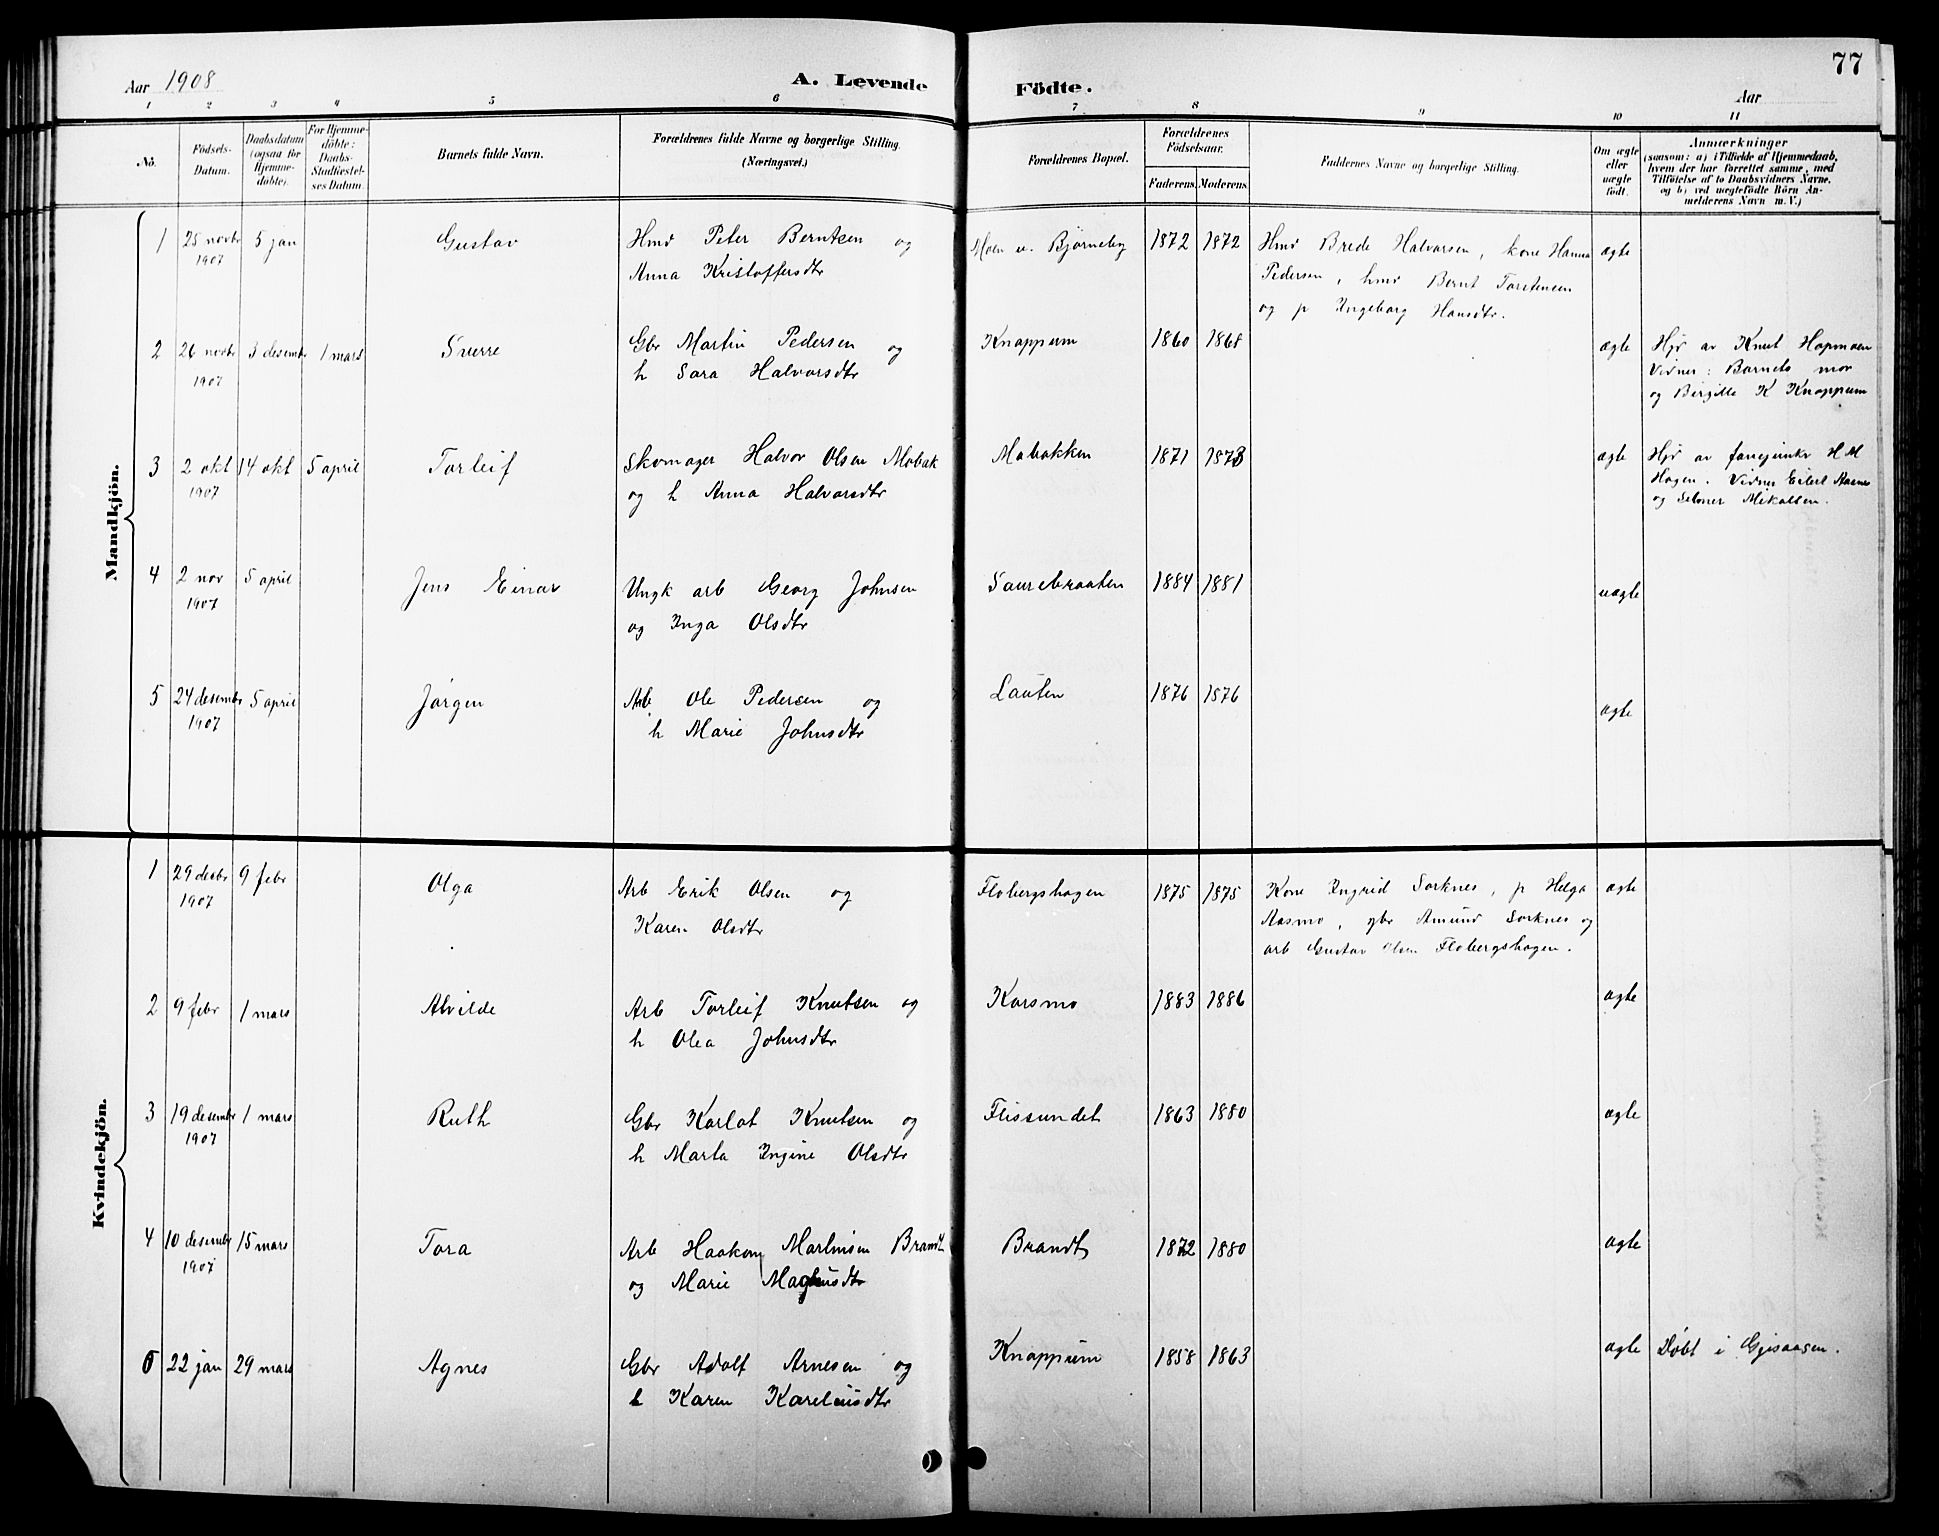 77
Aar 1908 A. Levende Födte. Aar
1 2 3 4 5 6 7 8 9 10 11
No. Födsels-Datum. Daabsdatum (ogsaa for Hjemmedöbte). For Hjemmedöbte: Daabs-Stadfæstelses Datum. Barnets fulde Navn. Forældrenes fulde Navne og borgerlige Stilling. (Næringsvei.) Forældrenes Bopæl. Forældrenes Födselsaar. Faderens. Moderens. Faddernes Navne og borgerlige Stilling. Om ægte eller uægte født. Anmærkninger (saasom: a) i Tilfælde af Hjemmedaab, hvem der har forrettet samme, med Tilföielse af to Daabsvidners Navne, og b) ved uægtefödte Börn Anmelderens Navn m. V.)
Mandkjön.
1 25 novbr 1907 5 jan Gustav Hmd Peter Berntsen og Moen u. Bjørneby 1872 1872 Hmd Brede Halvorsen, kone Hanna ægte
Anna Kristoffersdtr Pedersen, hmd Bernt Torstensen
og p Ingeborg Hansdtr.
2 26 novbr 1907 3 desembr 1 mars Sverre Gbr Martin Pedersen og Knappum 1860 1868 ægte Hjd av Knut Hapmoen
h Sara Halvorsdtr Vidner: Barnets mor
og Bergitte K Knappum
3 2 okt 1907 14 okt 5 april Torleif Skomager Halvor Olsen Mobak Mobakken 1871 1873 ægte Hjd av fanejunkr H M
og h Anna Halvorsdtr Hagen. Vidner Eilert Aasne
og Mikalsen.
4 2 nov 1907 5 april Jens Einar Ungk arb Georg Johnsen Saurebraaten 1884 1881 uægte
og Inga Olsdtr
5 24 desembr 1907 5 april Jørgen Arb Ole Pedersen og Lauten 1876 1876 ægte
h Marie Johnsdtr
Kvindekjön.
1 29 desbr 1907 9 febr Olga Arb Erik Olsen og Flobergshagen 1875 1875 Kone Ingrid Sorknes, p Helga ægte
Karen Olsdtr Aasmo, gbr Amund Sorknes og
arb Gustav Olsen Flobergshagen.
2 9 febr 1 mars Alvilde Arb Torleif Knutsen og Korsmo 1883 1886 ægte
h Olea Johnsdtr
3 19 desembr 1907 1 mars Ruth Gbr Karlot Knutsen og Flissundet 1863 1880 ægte
h Marta Ingine Olsdtr
4 10 desembr 1907 15 mars Tora Arb Haakon Martinsen Brandt Brandt 1872 1880 ægte
og Marie Magnusdtr
5 22 jan 29 mars Agnes Gbr Adolf Arnesen og Knappum 1858 1863 ægte Døbt i Gjesaasen.
h Karen Kareliusdtr